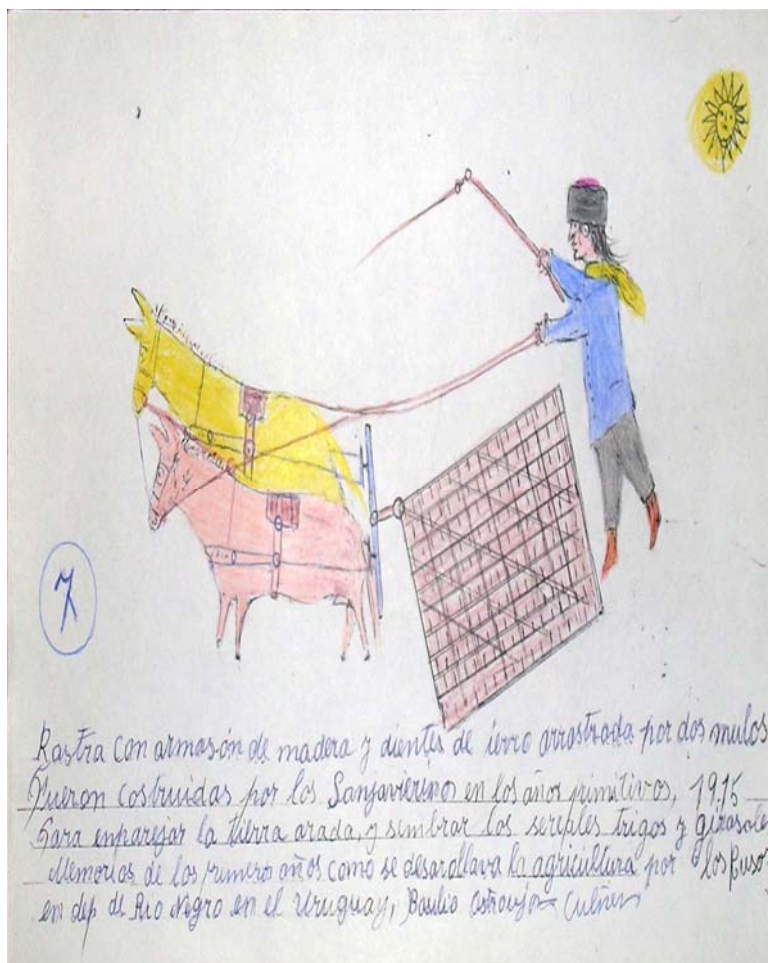 7
Rastra con armasón de madera y dientes de ierro arrastrada por dos mulos
Fueron costruidas por los Sanjavierinos en los años primitivos, 1915
Para enparejar la tierra arada, y sembrar los sereales trigos y girasoles
Memorias de los primeros años como se desarollava la agricultura por los Rusos
en dep de Rio Negro en el Uruguay, Baulio